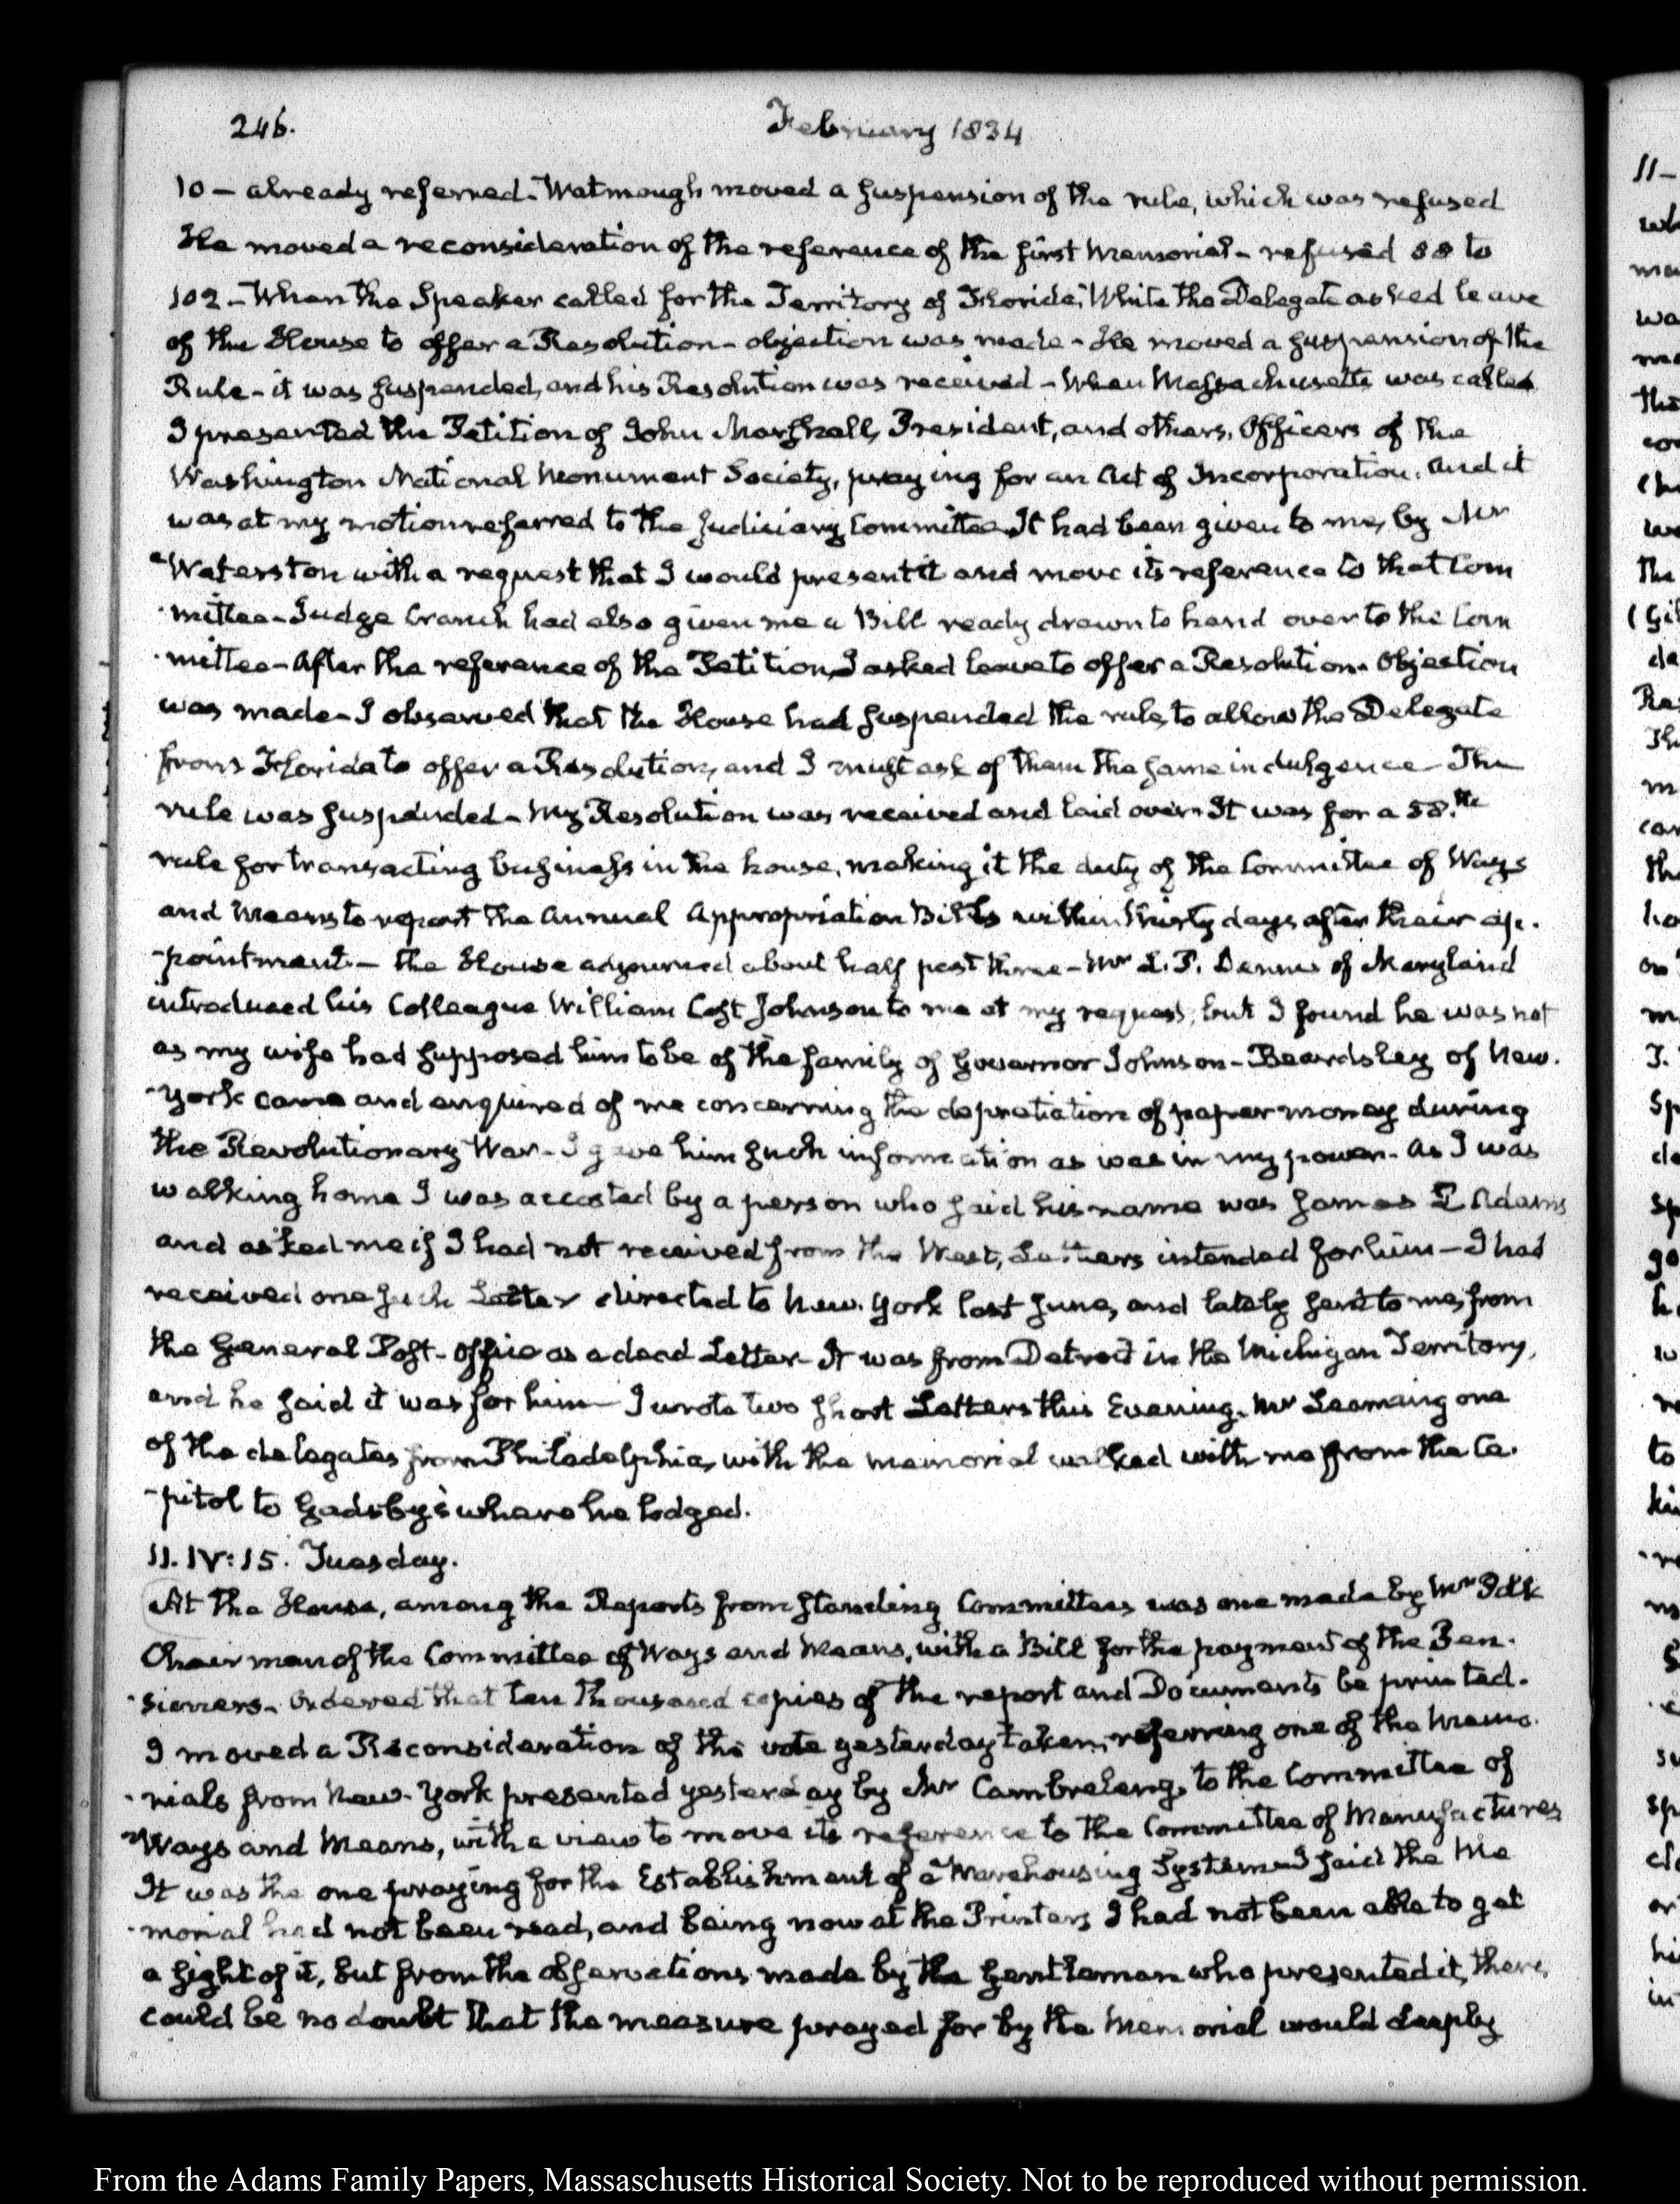 246. February 1834
10 — already referred. Watmough moved a suspension of the rule, which was refused
He moved a reconsideration of the reference of the first Memorial - refused 88 to
102 - When the Speaker called for the Territory of Florida, White the Delegate asked leave
of the House to offer a Resolution - objection was made - He moved a suspension of the
Rule - it was suspended, and his Resolution was received - When Massachusetts was called
I presented the Petition of John Marshall, President, and others, Officers of the
Washington National Monument Society, praying for an Act of Incorporation. And it
was at my motion referred to the Judiciary Committee. It had been given to me, by Mr
Waterston with a request that I would present it and move its reference to that Com
-mittee - Judge Cranch had also given me a Bill ready drawn to hand over to the Com
-mittee - After the reference of the Petition, I asked leave to offer a Resolution. Objection
was made - I observed that the House had suspended the rule, to allow the Delegate
from Florida to offer a Resolution, and I must ask of them the same indulgence - The
rule was suspended - My Resolution was received and laid over - It was for a 58.th
rule for transacting business in the house, making it the duty of the Committee of Ways
and Means to report the Annual Appropriation Bills within thirty days after their ap.
-pointment. - The House adjourned about half past three - Mr L. P. Dennis of Maryland
introduced his Colleague William Cost Johnson to me at my request, but I found he was not
as my wife had supposed him to be of the family of Governor Johnson - Beardsley of New.
-York came and enquired of me concerning the depretiation of paper money during
the Revolutionary War - I gave him such information as was in my power. As I was
walking home I was accosted by a person who said his name was James Adams
and asked me if I had not received from the West, Letters intended for him - I had
received one such Letter directed to New. York last June, and lately sent to me, from
the General Post-Office as a dead Letter - It was from Detroit in the Michigan Territory,
and he said it was for him - I wrote two short Letters this Evening. Mr Leaming one
of the delegates from Philadelphia, with the memorial walked with me from the Ca.
-pitol to Gadsby's where he lodged.
11. IV:15. Tuesday.
At the House, among the Reports from standing Committees was one made by Mr Polk
Chairman of the Committee of Ways and Means, with a Bill for the payment of the Pen.
-sioners - Ordered that ten thousand copies of the report and Documents be printed.
I moved a Reconsideration of the vote yesterday taken, referring one of the Memo.
-rials from New-York presented yesterday by Mr Cambreleng, to the Committee of
Ways and Means, with a view to move its reference to the Committee of Manufactures
It was the one praying for the Establishment of a Warehousing System - I said the Me
-morial had not been read, and being now at the Printers I had not been able to get
a sight of it, but from the observations made by the Gentleman who presented it, there
could be no doubt that the measure prayed for by the Memorial would deeply
From the Adams Family Papers, Massachusetts Historical Society. Not to be reproduced without permission.